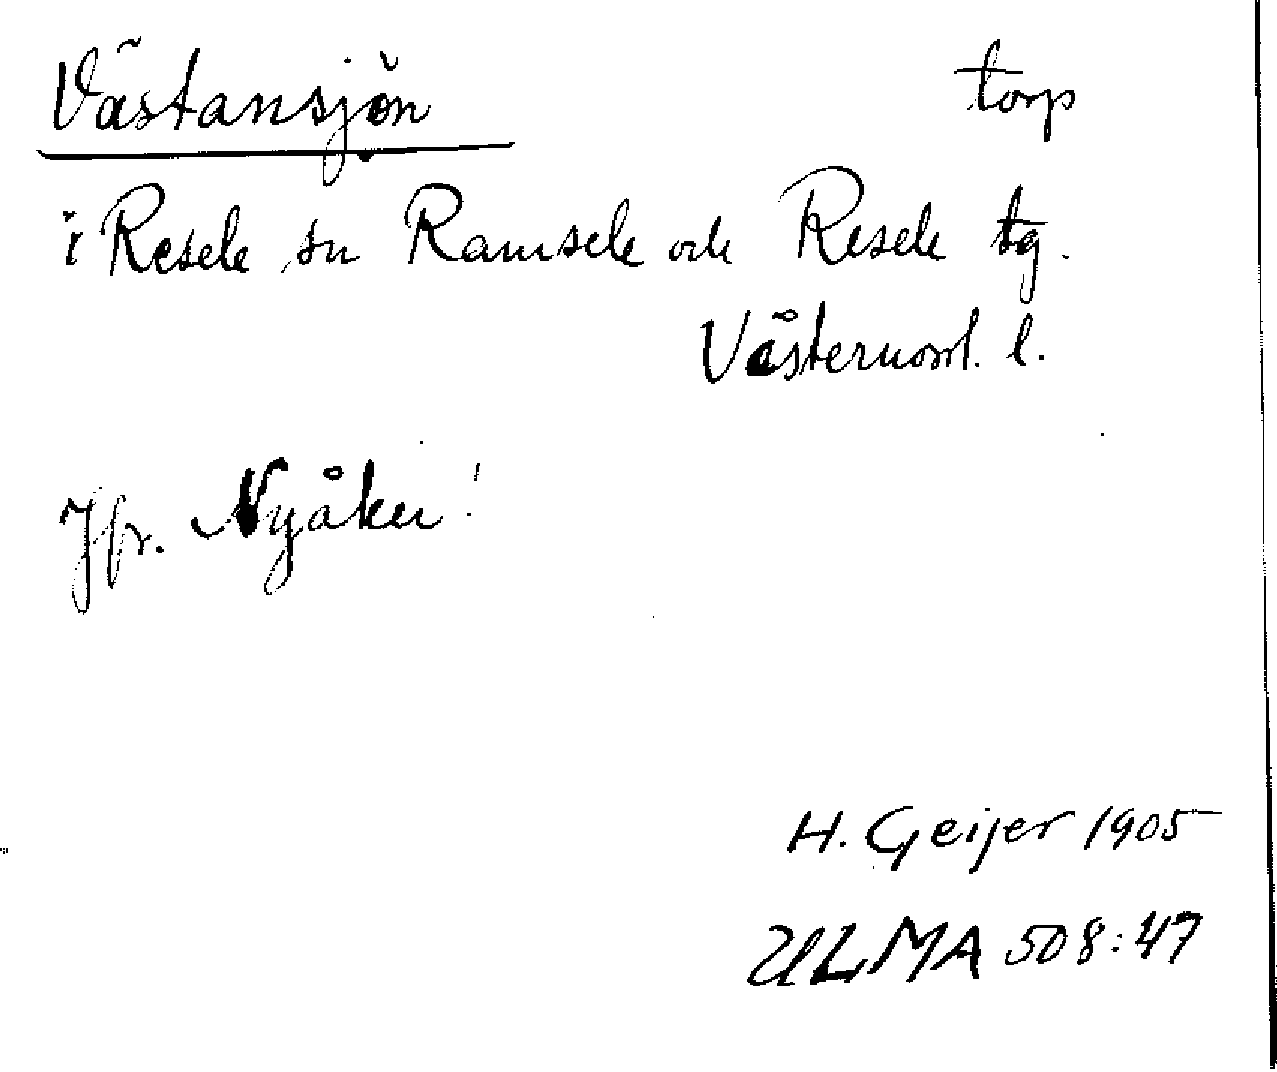 Västansjön torp
i Resele sn Ramsele och Resele tg.
Västernorrl. l.
Jfr. Nyåker!
H. Geijer 1905
ULMA 508:47